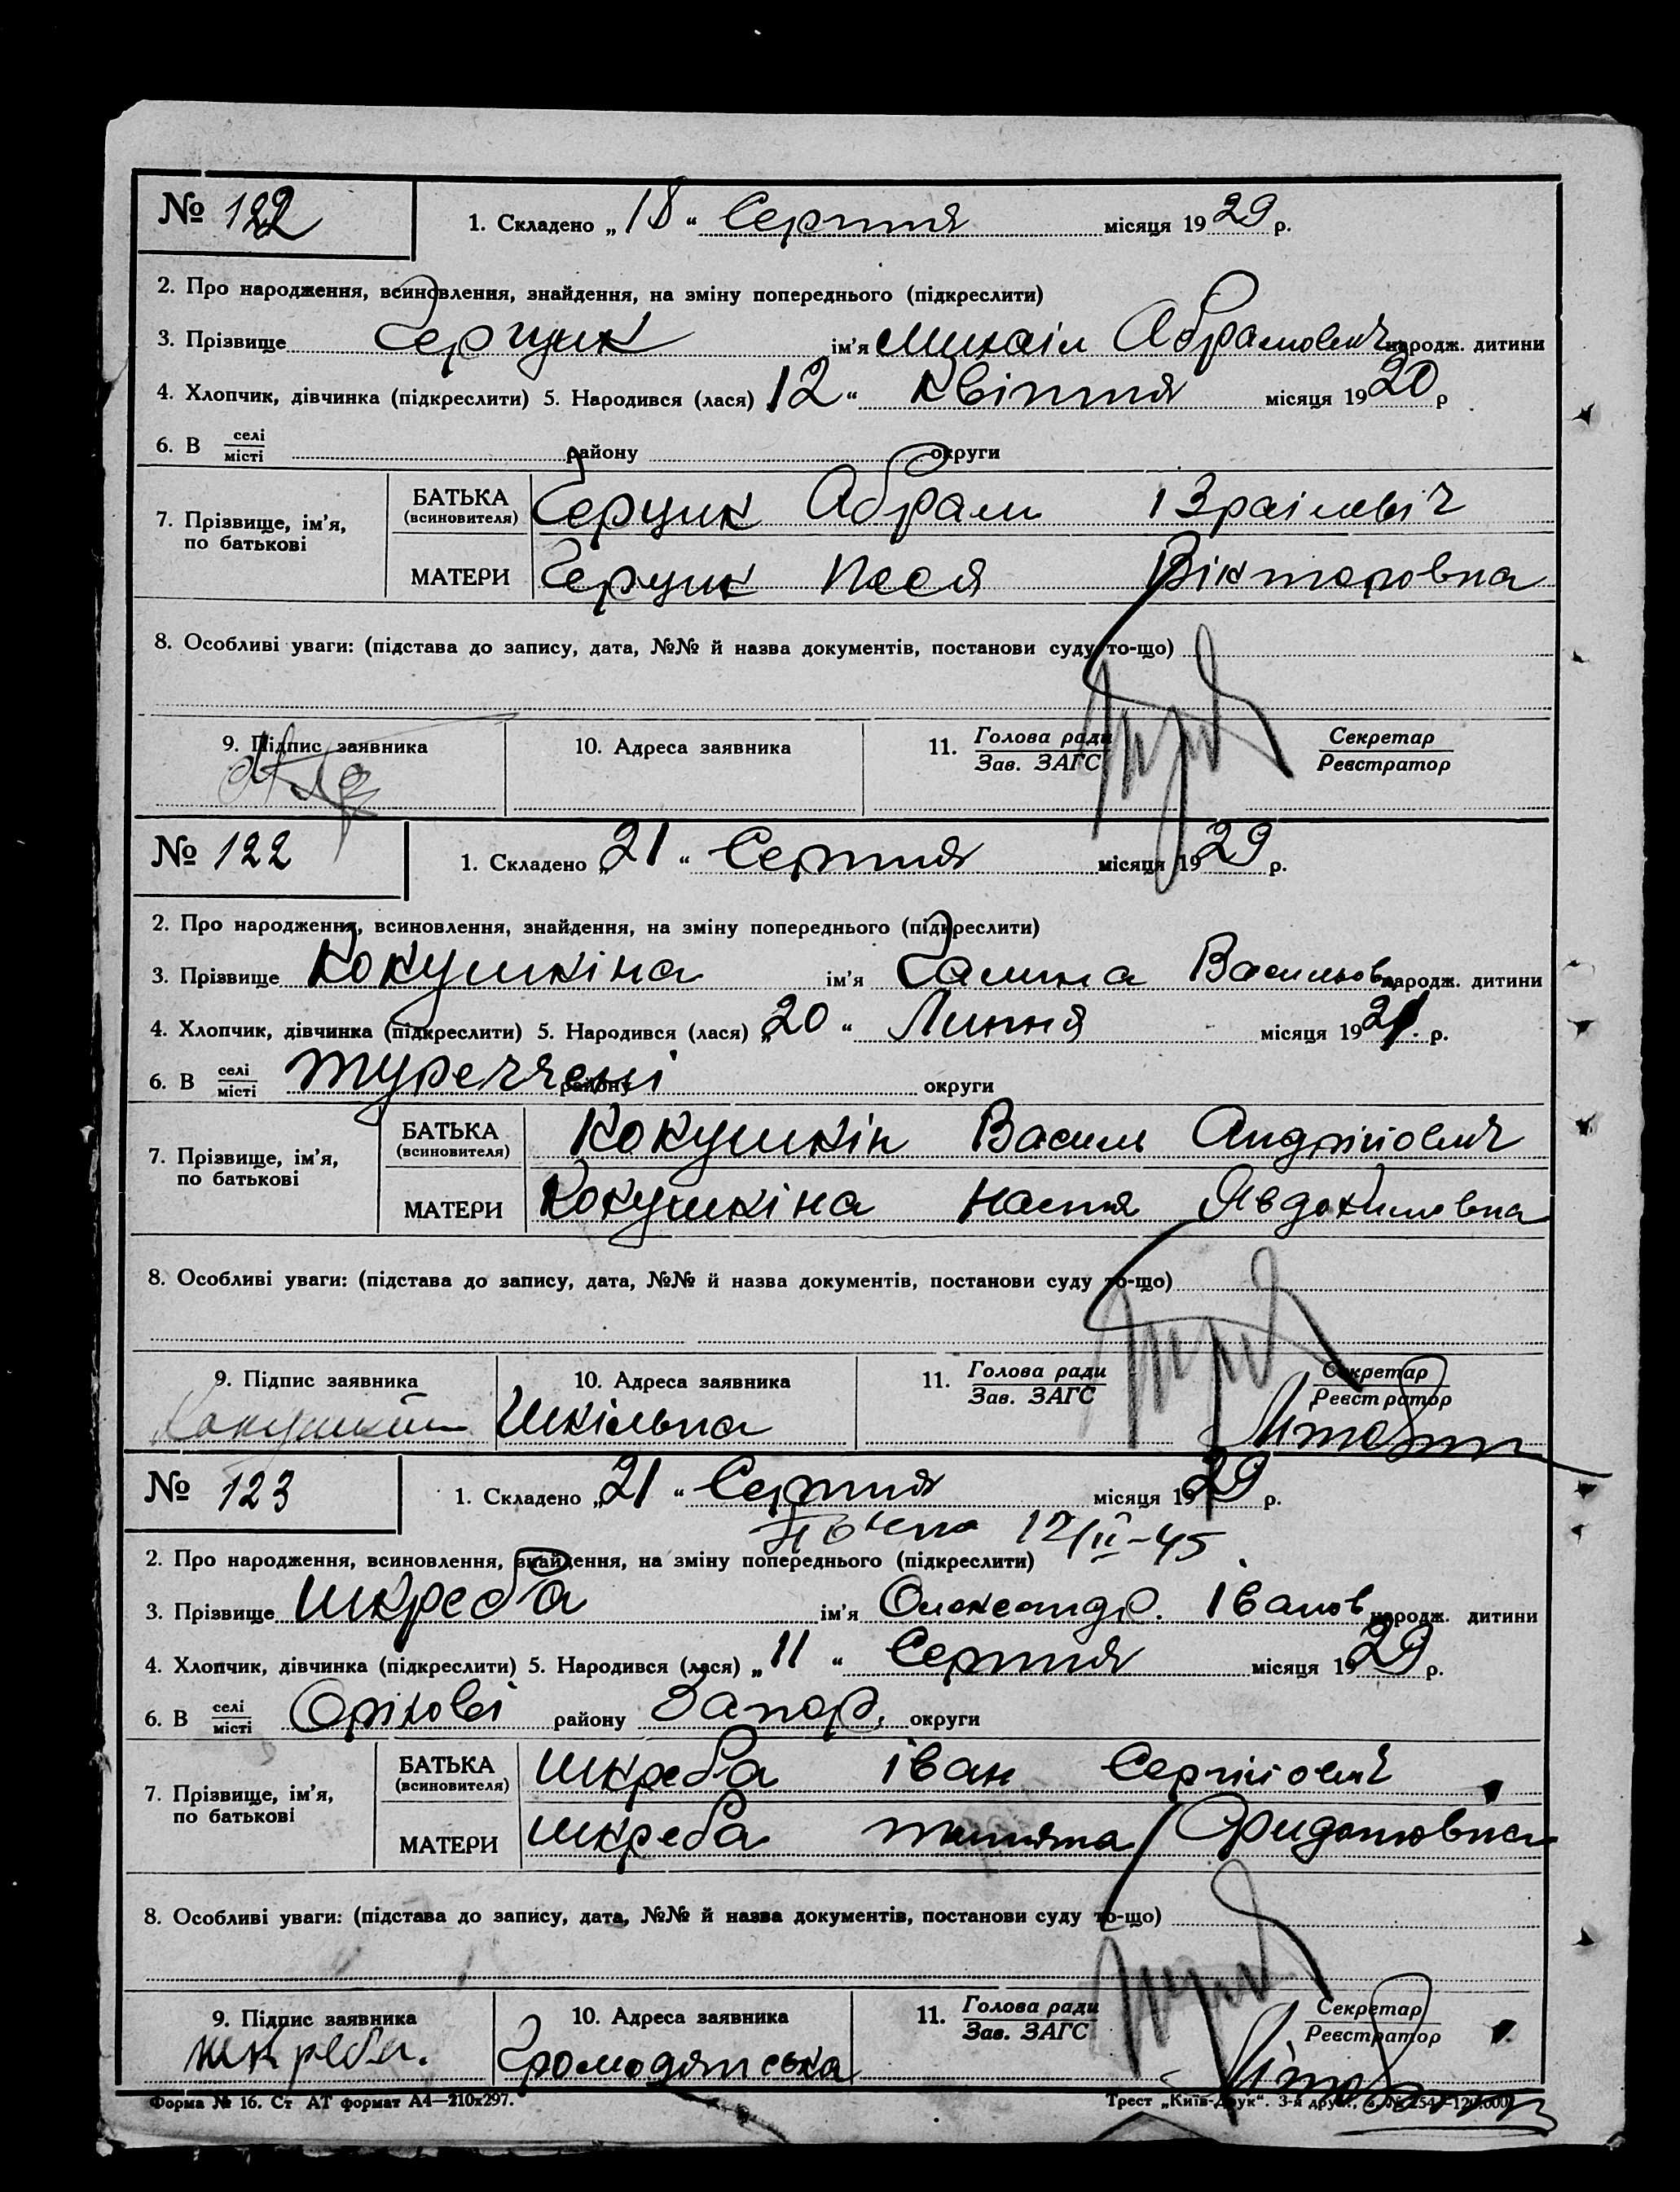 № 122 1. Складено „18“ Серпня місяця 1929 р.
2. Про народження, всиновлення, знайдення, на зміну попереднього (підкреслити)
3. Прізвище Герцик ім’я Михаіл Абрамович народж. дитини
4. Хлопчик, дівчинка (підкреслити) 5. Народився (лася) „12“ Квітня місяця 1920 р
6. В селі/місті району округи
7. Прізвище, ім’я, по батькові БАТЬКА (всиновителя) Герцик Абрам Ізраілевіч
МАТЕРИ Герцик Песя Вікторовна
8. Особливі уваги: (підстава до запису, дата, №№ й назва документів, постанови суду то-що)
9. Підпис заявника 10. Адреса заявника 11. Голова ради/Зав. ЗАГС Секретар/Реєстратор
№ 122 1. Складено „21“ Серпня місяця 1929 р.
2. Про народження, всиновлення, знайдення, на зміну попереднього (підкреслити)
3. Прізвище Кокушкіна ім’я Галина Васильов народж. дитини
4. Хлопчик, дівчинка (підкреслити) 5. Народився (лася) „20“ Липня місяця 1921 р.
6. В селі/місті Туреччені району округи
7. Прізвище, ім’я, по батькові БАТЬКА (всиновителя) Кокушкін Василь Андрійович
МАТЕРИ Кокушкіна Настя Явдокимовна
8. Особливі уваги: (підстава до запису, дата, №№ й назва документів, постанови суду то-що)
9. Підпис заявника 10. Адреса заявника 11. Голова ради/Зав. ЗАГС Секретар/Реєстратор
Кокушкін Шкільна
№ 123 1. Складено „21“ Серпня місяця 1929 р.
12/II-45
2. Про народження, всиновлення, знайдення, на зміну попереднього (підкреслити)
3. Прізвище Шкреба ім’я Олександр. Іванов народж. дитини
4. Хлопчик, дівчинка (підкреслити) 5. Народився (лася) „11“ Серпня місяця 1929 р.
6. В селі/місті Оріхові району Запор. округи
7. Прізвище, ім’я, по батькові БАТЬКА (всиновителя) Шкреба Іван Сергійович
МАТЕРИ Шкреба
8. Особливі уваги: (підстава до запису, дата, №№ й назва документів, постанови суду то-що)
9. Підпис заявника 10. Адреса заявника 11. Голова ради/Зав. ЗАГС Секретар/Реєстратор
Шкреба. Громодянська
Форма № 16. Ст АТ формат А4—210х297. Трест „Київ-Друк“. 3-я друк.,